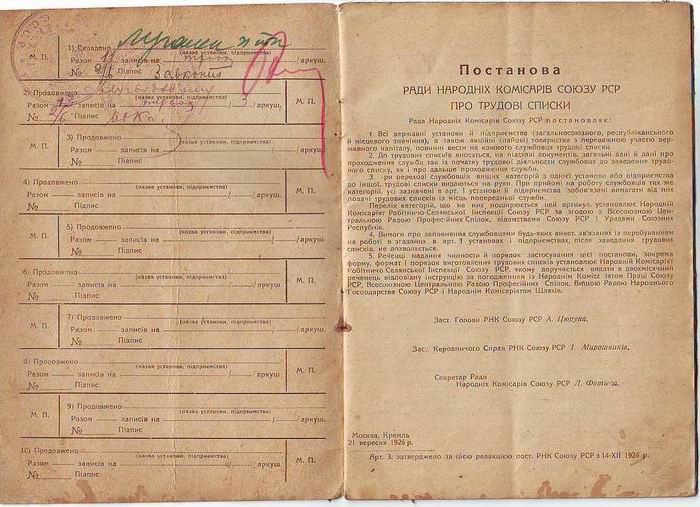 М. П.
1) Складено
(назва установи, підприємства)
Разом записів на трьох аркуш.
№ Підпис
2) Продовжено
3
М. П.
№
М. П.
3) Продовжено
(назва установи, підприємства)
Разом — записів на / аркуш.
№ Підпис
4) Продовжено
(назва установи, підприємства)
Разом — записів на / аркуш.
№ Підпис
М. П.
М. П.
5) Продовжено
(назва установи, підприємства)
Разом — записів на / аркуш.
№ Підпис
6) Продовжено
(назва установи, підприємства)
Разом — записів на / аркуш.
№ Підпис
М. П.
М. П.
7) Продовжено
(назва установи, підприємства)
Разом — записів на / аркуш.
№ Підпис
8) Продовжено
(назва установи, підприємства)
Разом — записів на / аркуш.
№ Підпис
М. П.
М. П.
9) Продовжено
(назва установи, підприємства)
Разом — записів на / аркуш.
№ Підпис
10) Продовжено
(назва установи, підприємства)
Разом — записів на / аркуш.
№ Підпис
М. П.
Постанова
РАДИ НАРОДНІХ КОМІСАРІВ СОЮЗУ РСР
ПРО ТРУДОВІ СПИСКИ
Рада Народніх Комісарів Союзу РСР постановляє:
1. Всі державні установи й підприємства (загальносоюзного, республіканського
й місцевого значіння), а також акційні (пайові) товариства з переважною участю дер-
жавного капіталу, повинні вести на кожного службовця трудові списки.
2. До трудових списків вносяться, на підставі документів, загальні дані й дані про
проходження служби так із початку трудової діяльности службовця до заведення трудо-
вого списку, як і про дальше проходження служби.
3. При переході службовців вищих категорій з однієї установи або підприємства
до іншої, трудові списки видаються на руки. При прийомі на роботу службовців цих же
категорій, усі зазначені в арт. 1 установи й підприємства зобов'язані вимагати від них
подачі трудових списків із місць попередньої служби.
Перелік категорій, що на них поширюється цей артикул, установлює Народній
Комісаріят Робітничо-Селянської Інспекції Союзу РСР за згодою з Всесоюзною Цен-
тральною Радою Професійних Спілок, відомствами Союзу РСР і Урядами Союзних
Республік.
4. Вимоги про заповнення службовцями будь-яких анкет, зв'язаних із перебуванням
на роботі в згаданих в арт. 1 установах і підприємствах, після заведення трудових
списків, не дозволяється.
5. Речінець надання чинности й порядок застосування цієї постанови, зокрема
форму, формат і порядок виготовлення трудових списків установлює Народній Комісаріят
Робітничо Селянської Інспекції Союзу РСР, якому доручається видати в двохмісячний
речінець відповідну інструкцію за погодженням із Народнім Комісаріятом Праці Союзу
РСР, Всесоюзною Центральною Радою Професійних Спілок, Вищою Радою Народнього
Господарства Союзу РСР і Народнім Комісаріятом Шляхів.
Заст. Голови РНК Союзу РСР А. Цюрупа.
Зас. Керовничого Справ РНК Союзу РСР І. Мирошніков.
Секретар Ради
Народніх Комісарів Союзу РСР Л. Фотієва.
Москва, Кремль
21 вересня 1926 р.
Арт. 3. затверджено за цією редакцією пост. РНК Союзу РСР з 14-XII 1926 р.